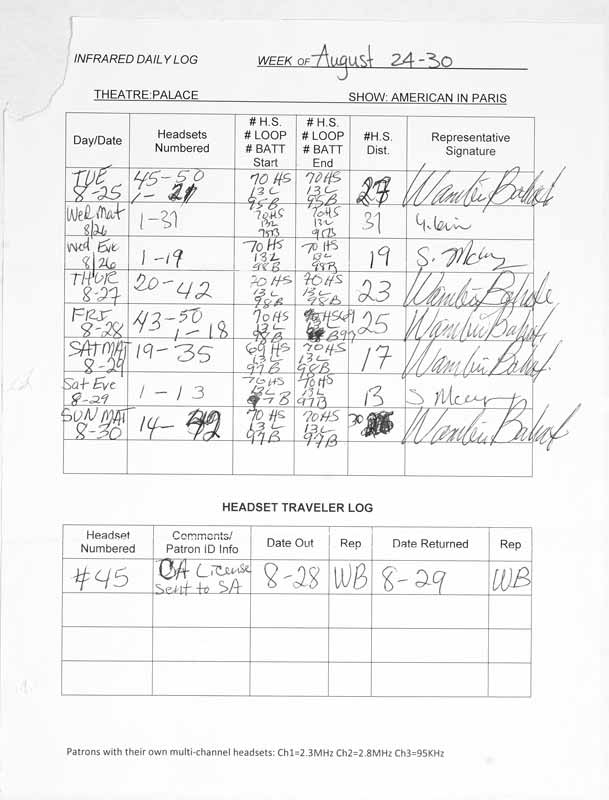 INFRARED DAILY LOG WEEK OF August 24-30
THEATRE:PALACE SHOW: AMERICAN IN PARIS
Day/Date Headsets Numbered # H.S. # LOOP # BATT Start # H.S. # LOOP # BATT End #H.S. Dist. Representative Signature
TUE 8-25 45-50 1- 70 HS 13 L 95 B 70 HS 13 L 95 B
Wed Mat 8/26 1-31 70HS 13L 70HS 13L 31
Wed Eve 8/26 1-19 70 HS 13L 98B 70 HS 13L 98B 19
THUR 8-27 20-42 70 HS 13 L 98B 70HS 13 L 98B 23
FRI 8-28 43-50 1-18 70 HS 13 L 98B HS69 B97 25
SAT MAT 8-29 19-35 69 HS 13 L 97 B 70HS 13 L 98B 17
Sat Eve 8-29 1-13 70 HS 13L 7 B 70HS 13L 97B 13
SUN MAT 8-30 14- 70 HS 13L 97B 70 HS 13L 97B 30
HEADSET TRAVELER LOG
Headset Numbered Comments/ Patron ID Info Date Out Rep Date Returned Rep
#45 CA License sent to SA 8-28 WB 8-29 WB
Patrons with their own multi-channel headsets: Ch1=2.3MHz Ch2=2.8MHz Ch3=95KHz